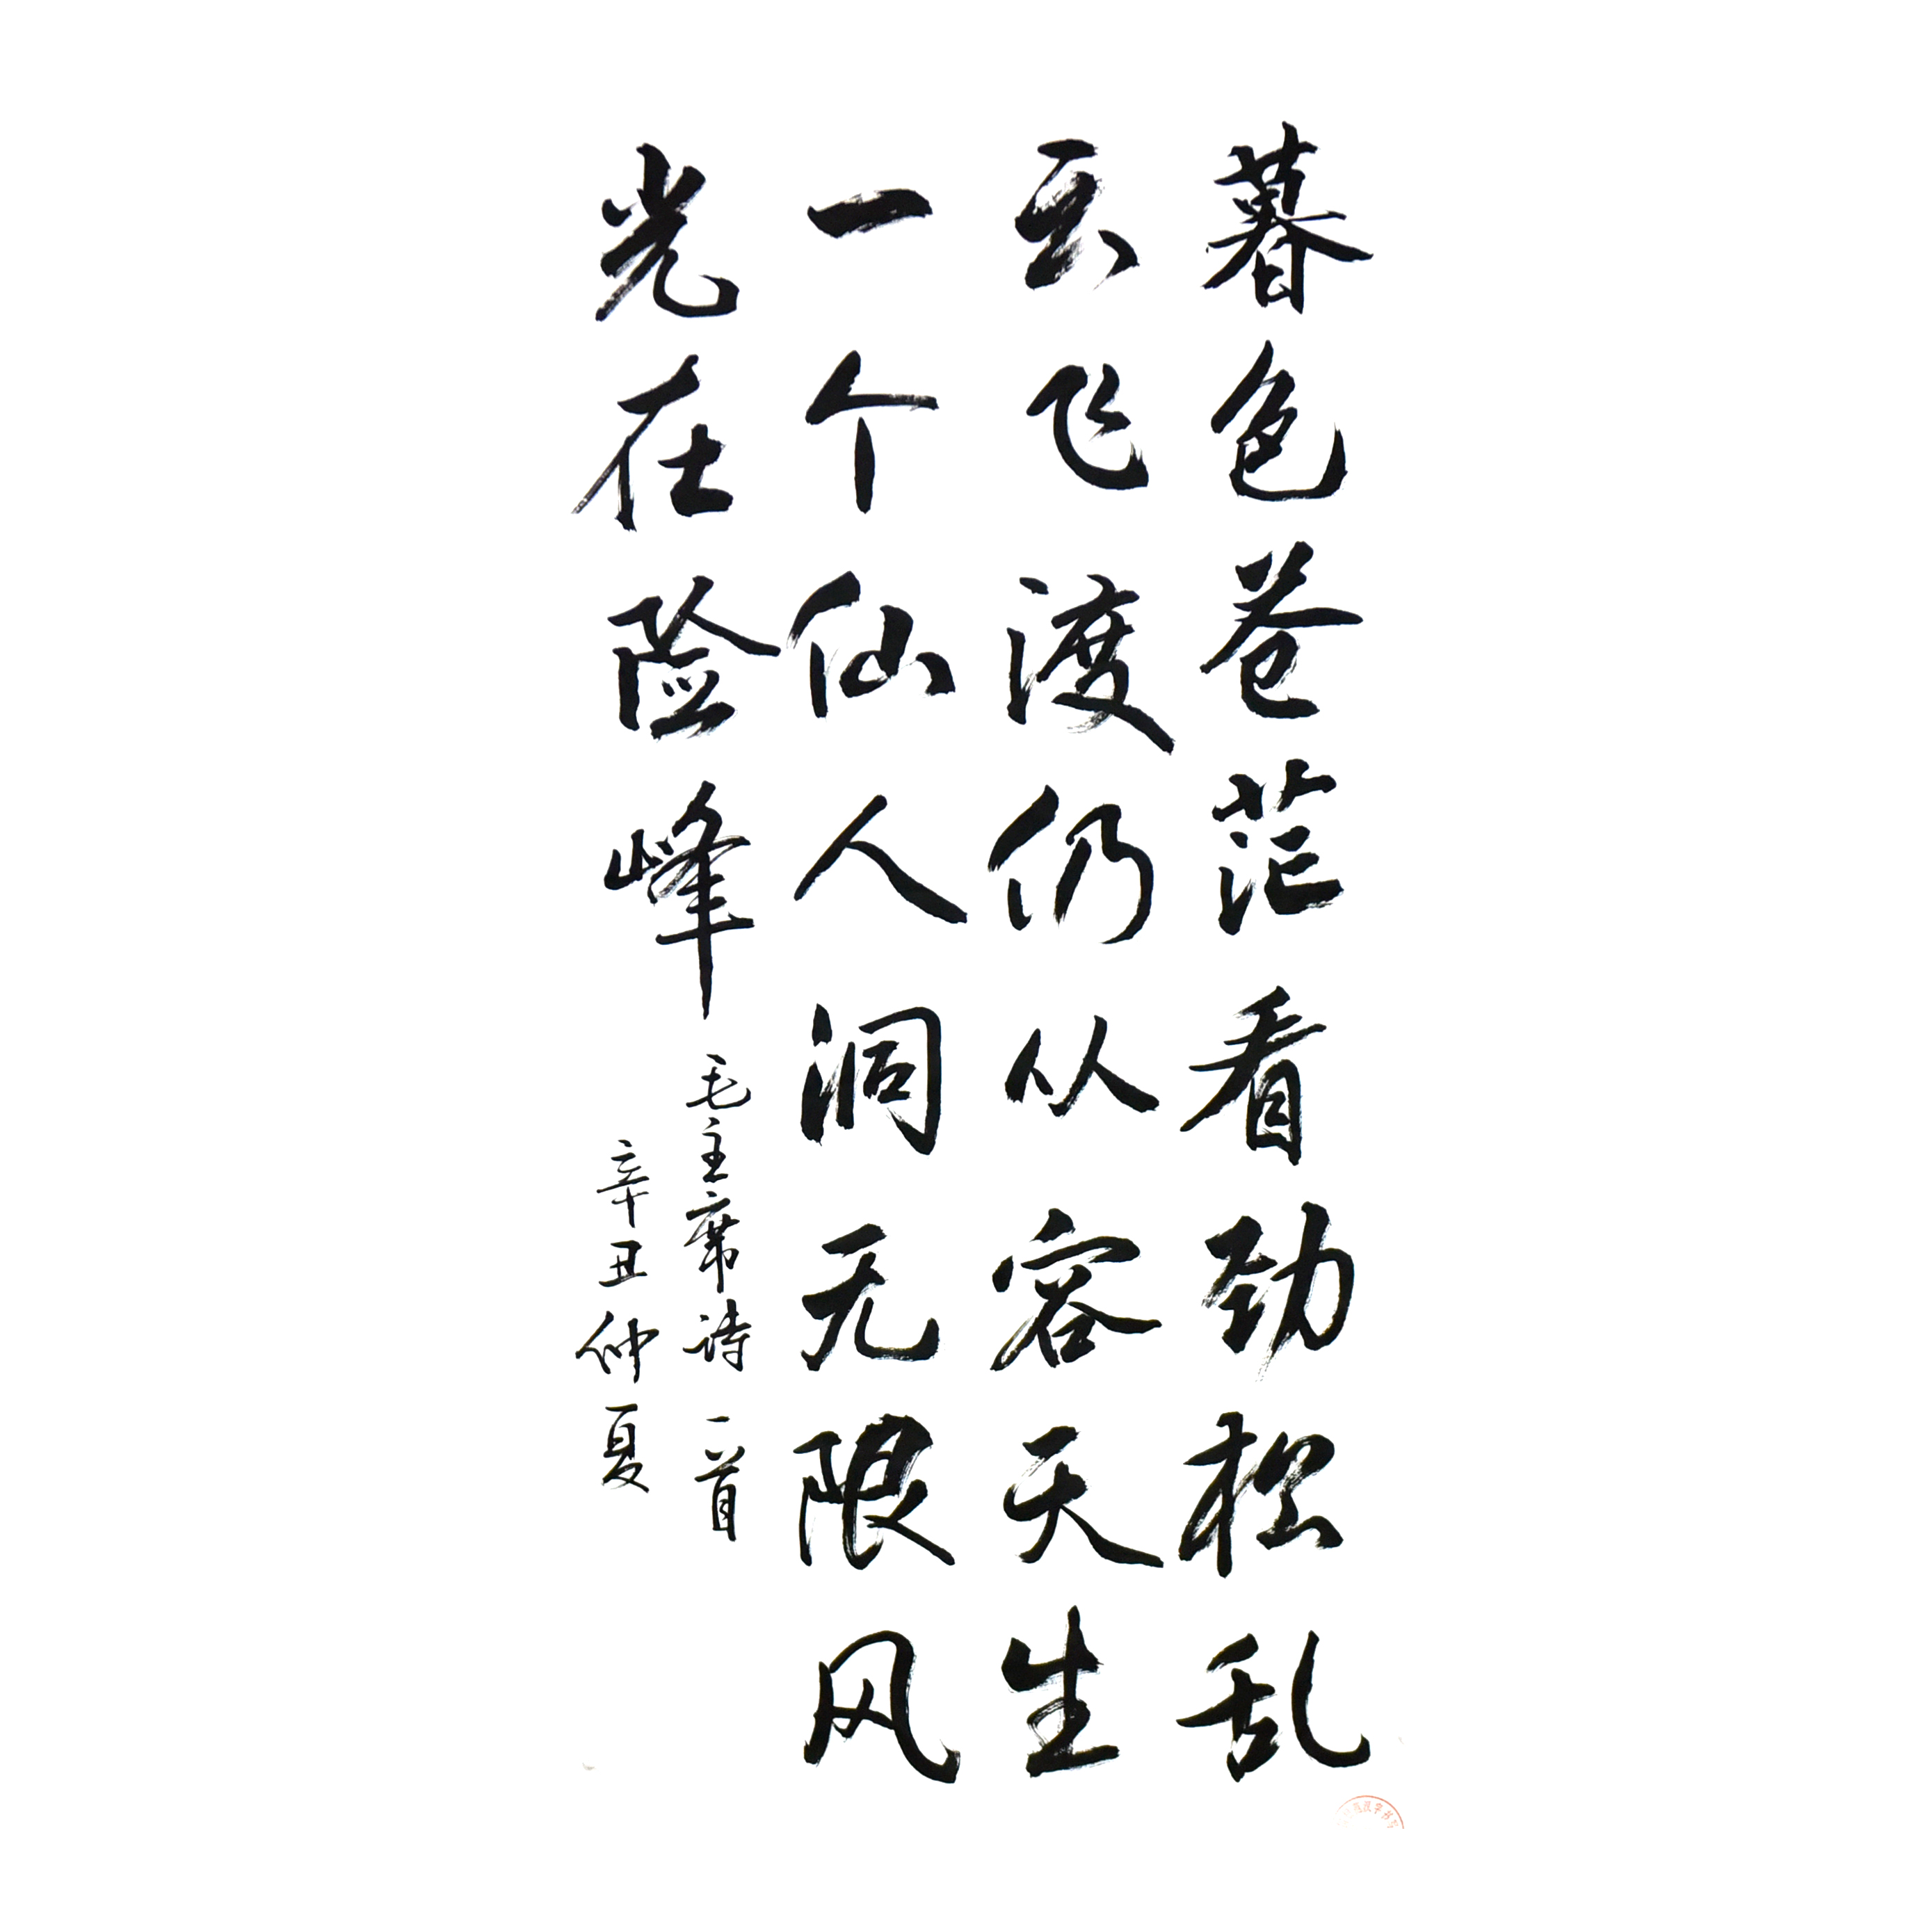 暮色苍茫看劲松乱
云飞渡仍从容天生
一个仙人洞无限风
光在险峰
毛主席诗一首
辛丑仲夏